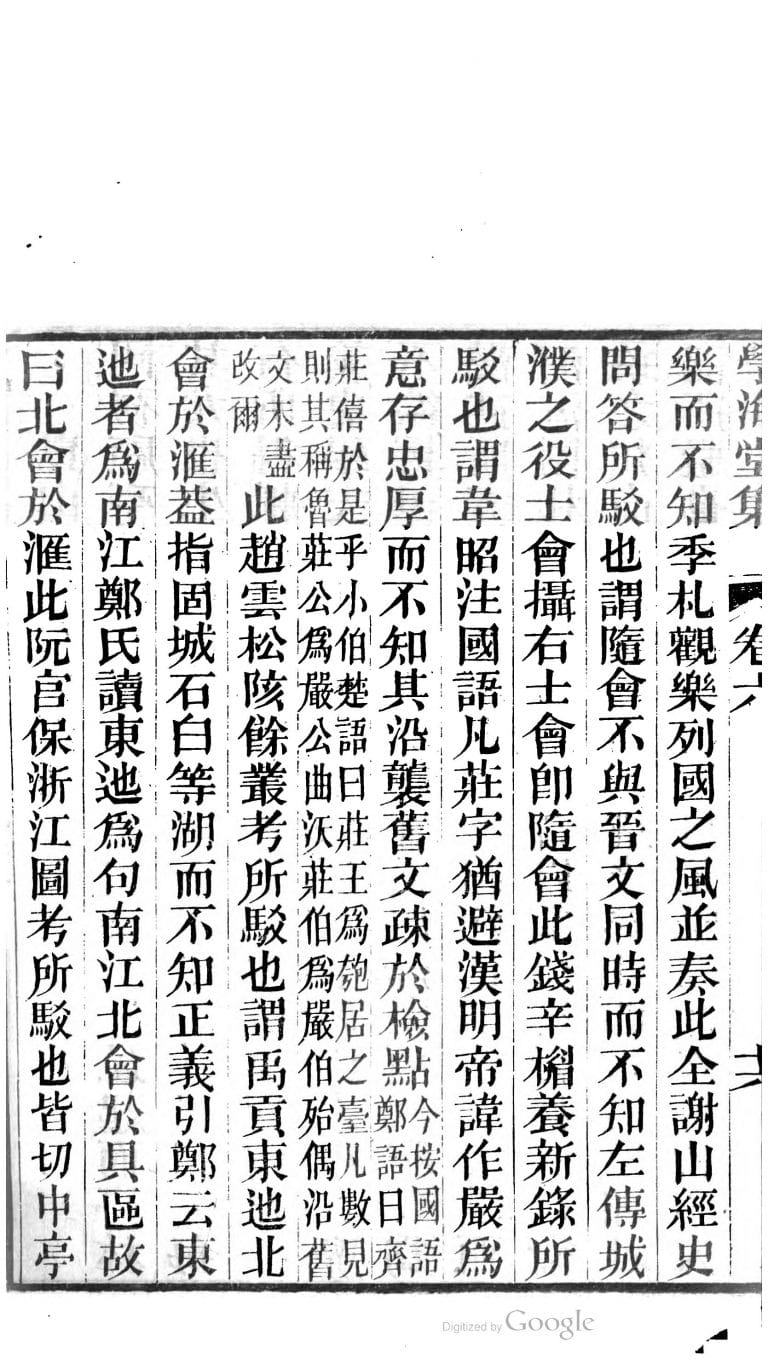 學海堂集 卷六 十六
樂而不知季札觀樂列國之風並奏此全謝山經史
問答所駮也謂隨會不與晉文同時而不知左傳城
濮之役士會攝右士會卽隨會此錢辛楣養新錄所
駮也謂韋昭注國語凡莊字猶避漢明帝諱作嚴爲
意存忠厚而不知其沿襲舊文疎於檢點今按國語鄭語曰齊
莊僖於是乎小伯楚語曰莊王爲匏居之臺凡數見
則其稱魯莊公爲嚴公曲沃莊伯爲嚴伯殆偶沿舊
文未盡改爾此趙雲松陔餘叢考所駮也謂禹貢東迆北
會於滙葢指固城石臼等湖而不知正義引鄭云東
迆者爲南江鄭氏讀東迆爲句南江北會於具區故
曰北會於滙此阮宮保浙江圖考所駮也皆切中亭
Digitized by Google